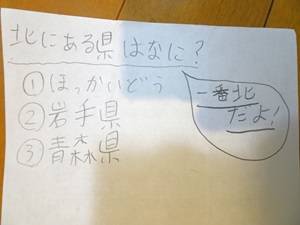 北にある県はなに?
①ほっかいどう
②岩手県
③青森県
一番北
だよ!